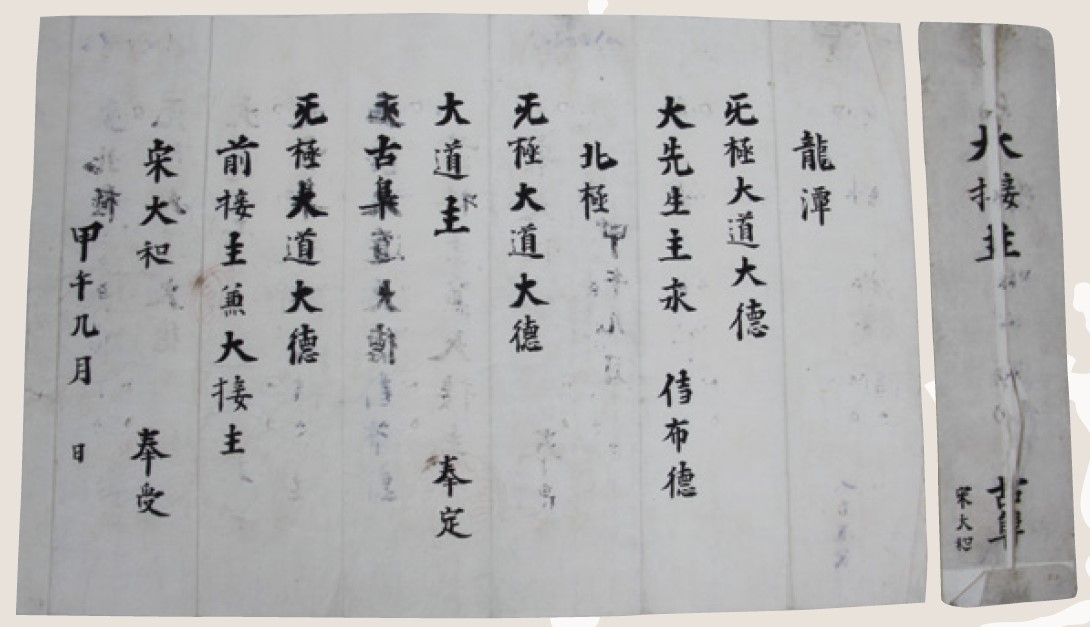 龍潭
旡極大道大德
大先生主 侍布德
北極
旡極大道大德
大道主 奉定
古阜
旡極大道大德
前接主兼大接主
宋大和 奉受
甲午九月 日
大接主 古阜
宋大和